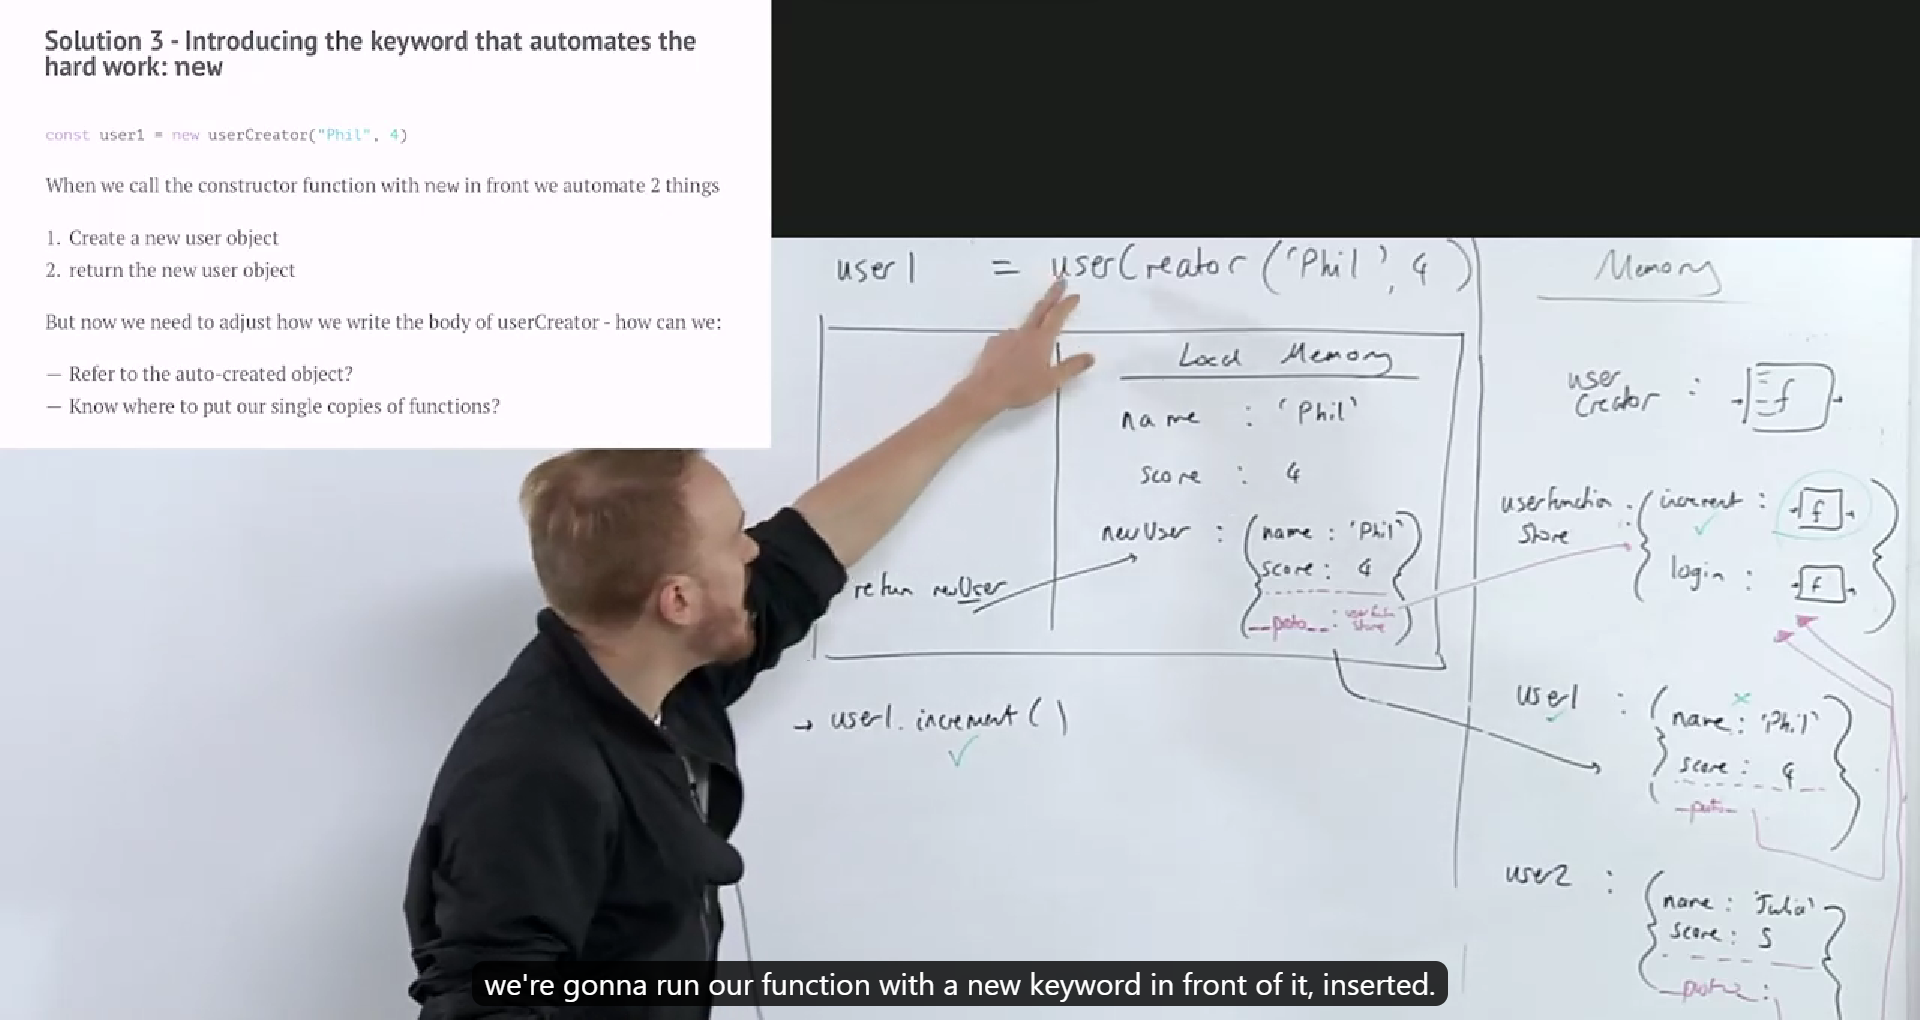 Solution 3 - Introducing the keyword that automates the
hard work: new
const user1 = new userCreator("Phil", 4)
When we call the constructor function with new in front we automate 2 things
1. Create a new user object
2. return the new user object
But now we need to adjust how we write the body of userCreator - how can we:
— Refer to the auto-created object?
— Know where to put our single copies of functions?
user1 = userCreator('Phil', 4)
Local Memory
name : 'Phil'
score : 4
newUser : { name : 'Phil'
score : 4
__proto__ :
return newUser
→ user1.increment()
Memory
user
Creator : f
userFunction
Store : { increment : f
login : f }
user1 : { name : 'Phil'
score : 4
__proto__
user2 : { name : 'Julia'
score : 5
__proto__ :
we're gonna run our function with a new keyword in front of it, inserted.